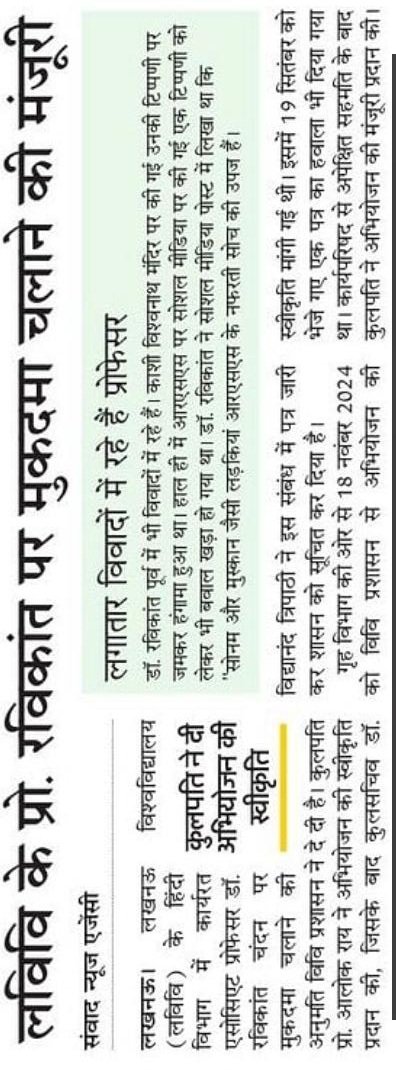 लविवि के प्रो. रविकांत पर मुकदमा चलाने की मंजूरी
संवाद न्यूज एजेंसी
लखनऊ। लखनऊ विश्वविद्यालय
(लविवि) के हिंदी
विभाग में कार्यरत
एसोसिएट प्रोफेसर डॉ.
रविकांत चंदन पर
मुकदमा चलाने की
अनुमति विवि प्रशासन ने दे दी है। कुलपति
प्रो. आलोक राय ने अभियोजन की स्वीकृति
प्रदान की, जिसके बाद कुलसचिव डॉ.
कुलपति ने दी
अभियोजन की
स्वीकृति
लगातार विवादों में रहे हैं प्रोफेसर
डॉ. रविकांत पूर्व में भी विवादों में रहे हैं। काशी विश्वनाथ मंदिर पर की गई उनकी टिप्पणी पर
जमकर हंगामा हुआ था। हाल ही में आरएसएस पर सोशल मीडिया पर की गई एक टिप्पणी को
लेकर भी बवाल खड़ा हो गया था। डॉ. रविकांत ने सोशल मीडिया पोस्ट में लिखा था कि
"सोनम और मुस्कान जैसी लड़कियां आरएसएस के नफरती सोच की उपज हैं।
विद्यानंद त्रिपाठी ने इस संबंध में पत्र जारी
कर शासन को सूचित कर दिया है।
गृह विभाग की ओर से 18 नवंबर 2024
को विवि प्रशासन से अभियोजन की
स्वीकृति मांगी गई थी। इसमें 19 सितंबर को
भेजे गए एक पत्र का हवाला भी दिया गया
था। कार्यपरिषद से अपेक्षित सहमति के बाद
कुलपति ने अभियोजन की मंजूरी प्रदान की।